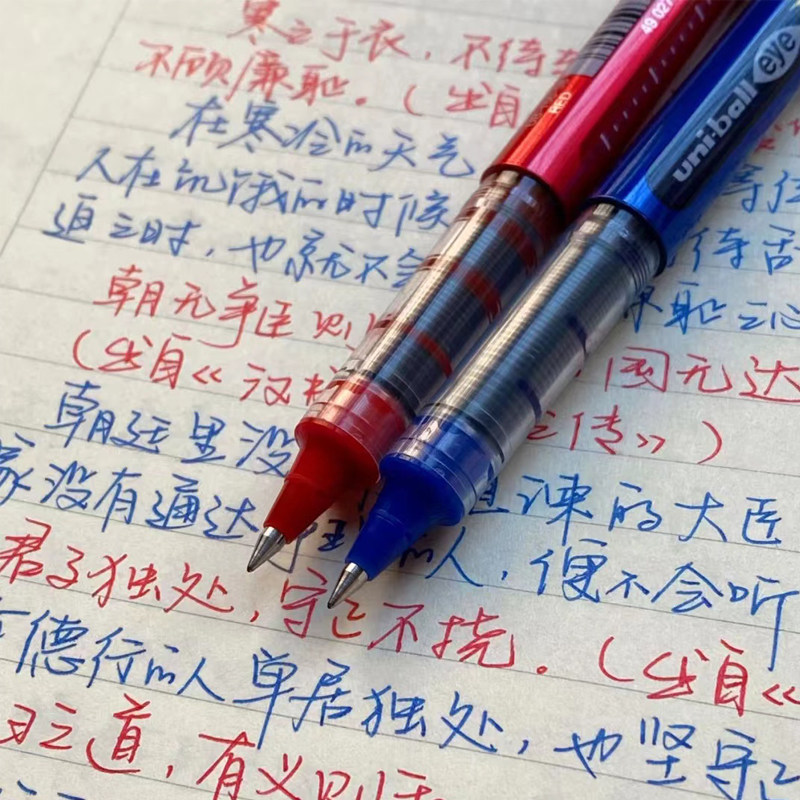 寒之于衣，不待轻
不顾廉耻。（出自
在寒冷的天气
人在饥饿的时候
迫之时，也就不会
待舌
耻之心
朝无争臣则
（出自《汉
，国无达
之传》）
朝廷里没
直谏的大臣
家没有通达
的人，便不会听
君子独处，守正不挠。（出自《
德行的人单居独处，也坚守
日之道，有义则
uni-ball eye
RED
49 027